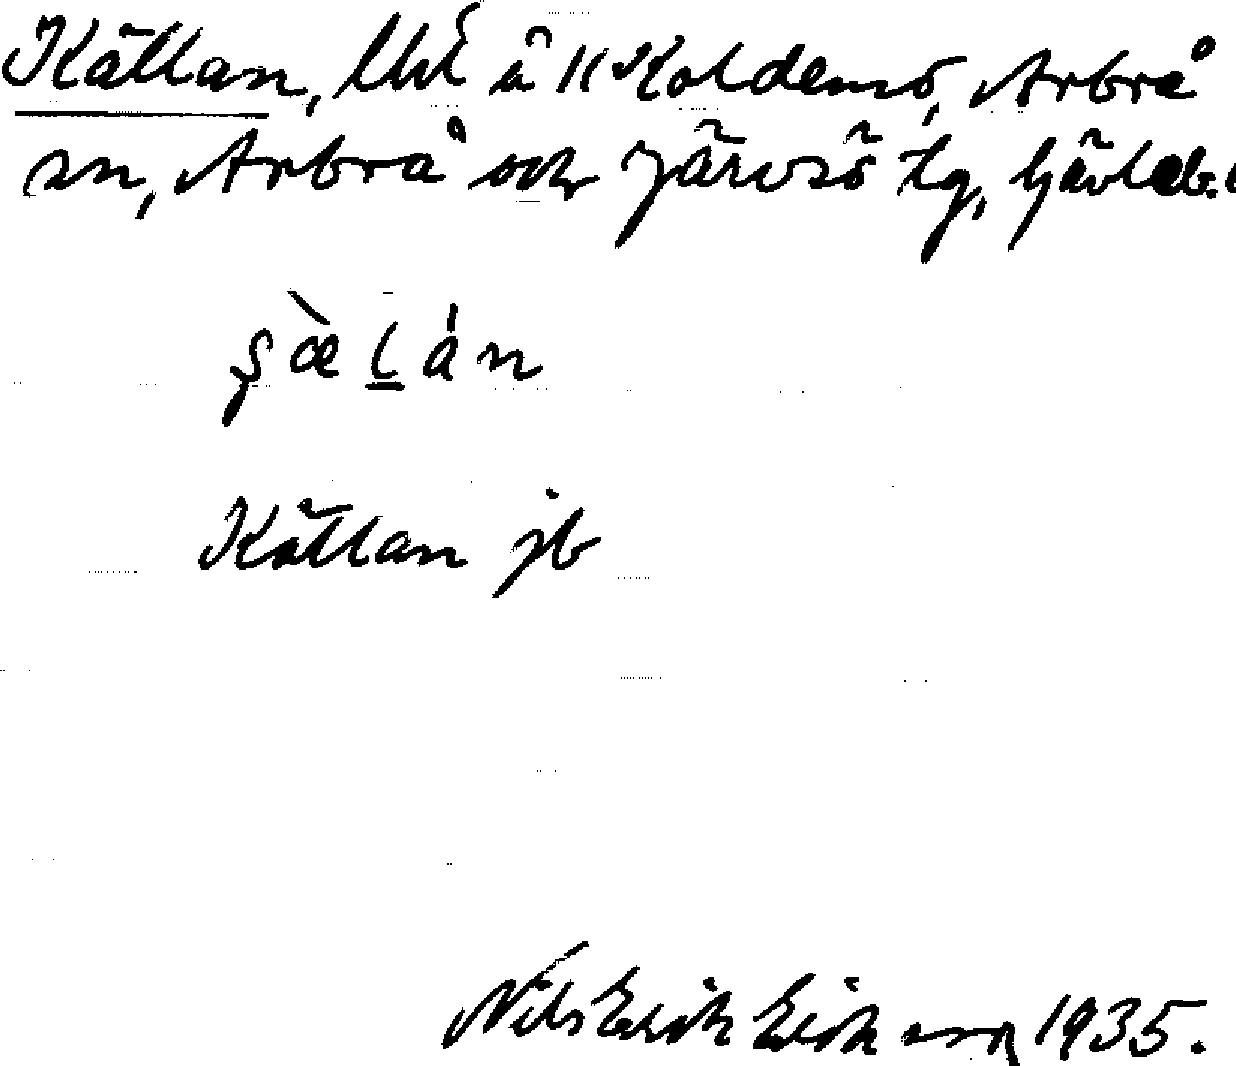 Källan, lht å K Koldemo, Arbrå
sn, Arbrå och Järvsö tg, Gävleb. l
Källan jb
Nils Erik Eriksson 1935.